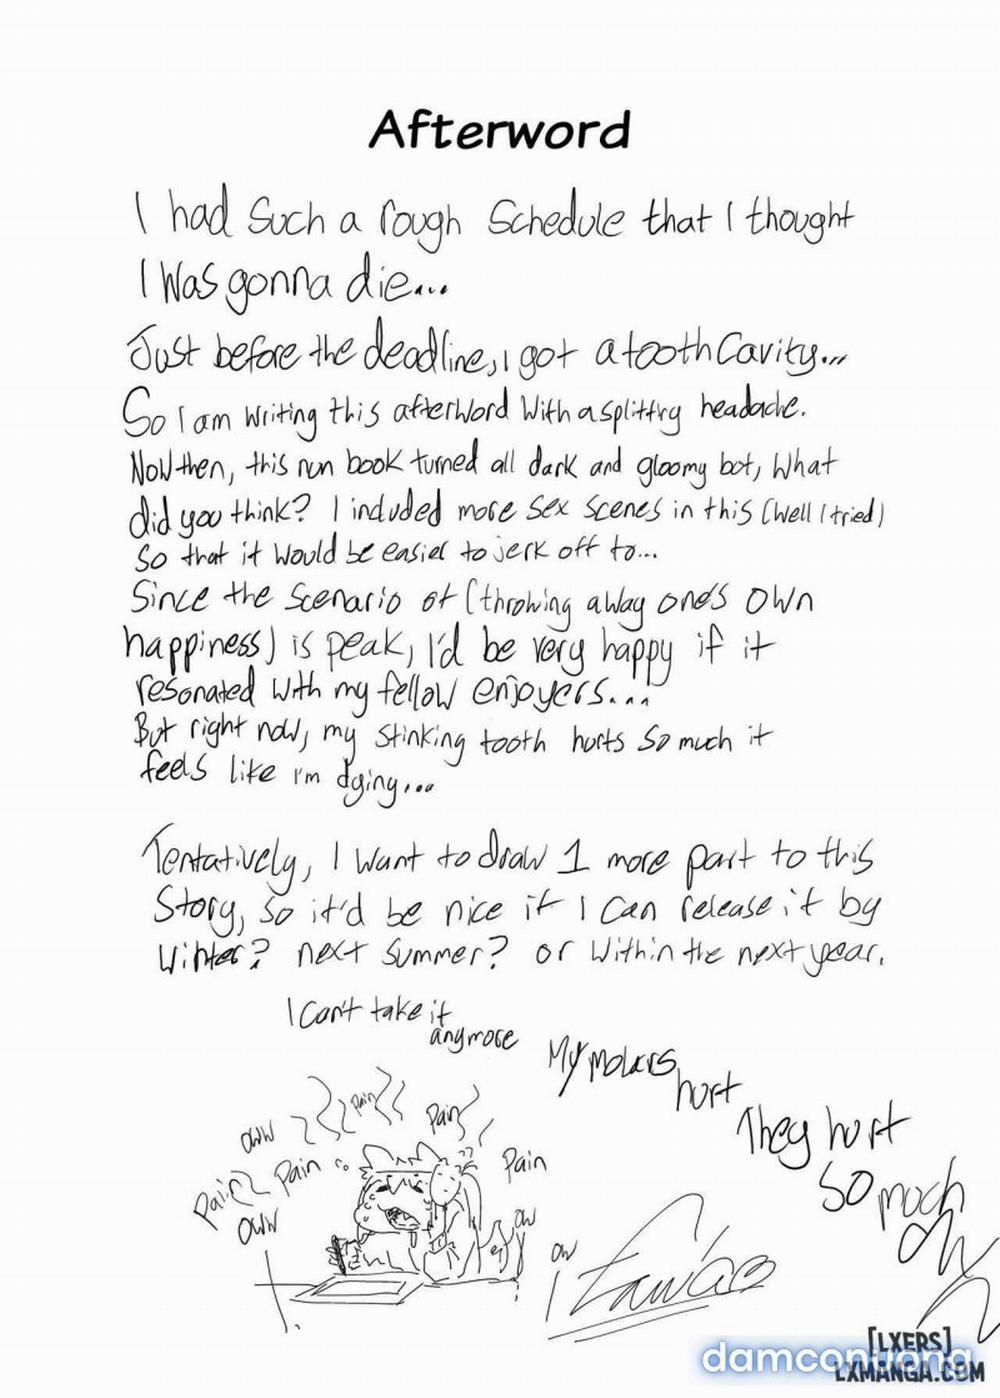 Afterword
I had such a rough schedule that I thought
I was gonna die...
Just before the deadline, I got a tooth cavity...
So I am writing this afterword with a splitting headache.
Now then, this nun book turned all dark and gloomy bot, what
did you think? I included more sex scenes in this (well I tried)
so that it would be easier to jerk off to...
Since the scenario of (throwing away one's own
happiness) is peak, I'd be very happy if it
resonated with my fellow enjoyers...
But right now, my stinking tooth hurts so much it
feels like I'm dying...
Tentatively, I want to draw 1 more part to this
story, so it'd be nice if I can release it by
winter? next summer? or within the next year.
I can't take it
anymore
My molars
hurt
They hurt
so much
ow
Pain
Pain
oww
Pain
Pain
Pain
oww
ow
ow
[LXERS]
damconuong
LXMANGA.COM